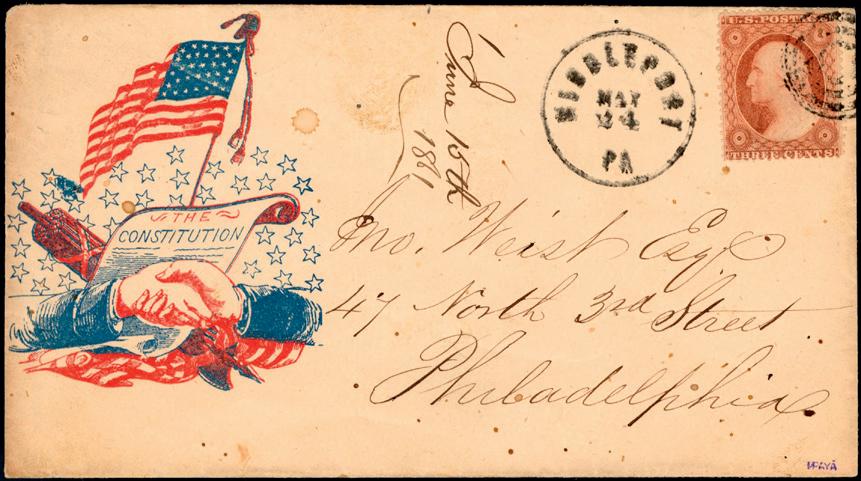 THE
CONSTITUTION
June 15th
1861
MIDDLEPORT
MAY
24
PA
U.S. POSTAGE
THREE CENTS
Jno. Weist Esq
47 North 3rd Street
Philadelphia